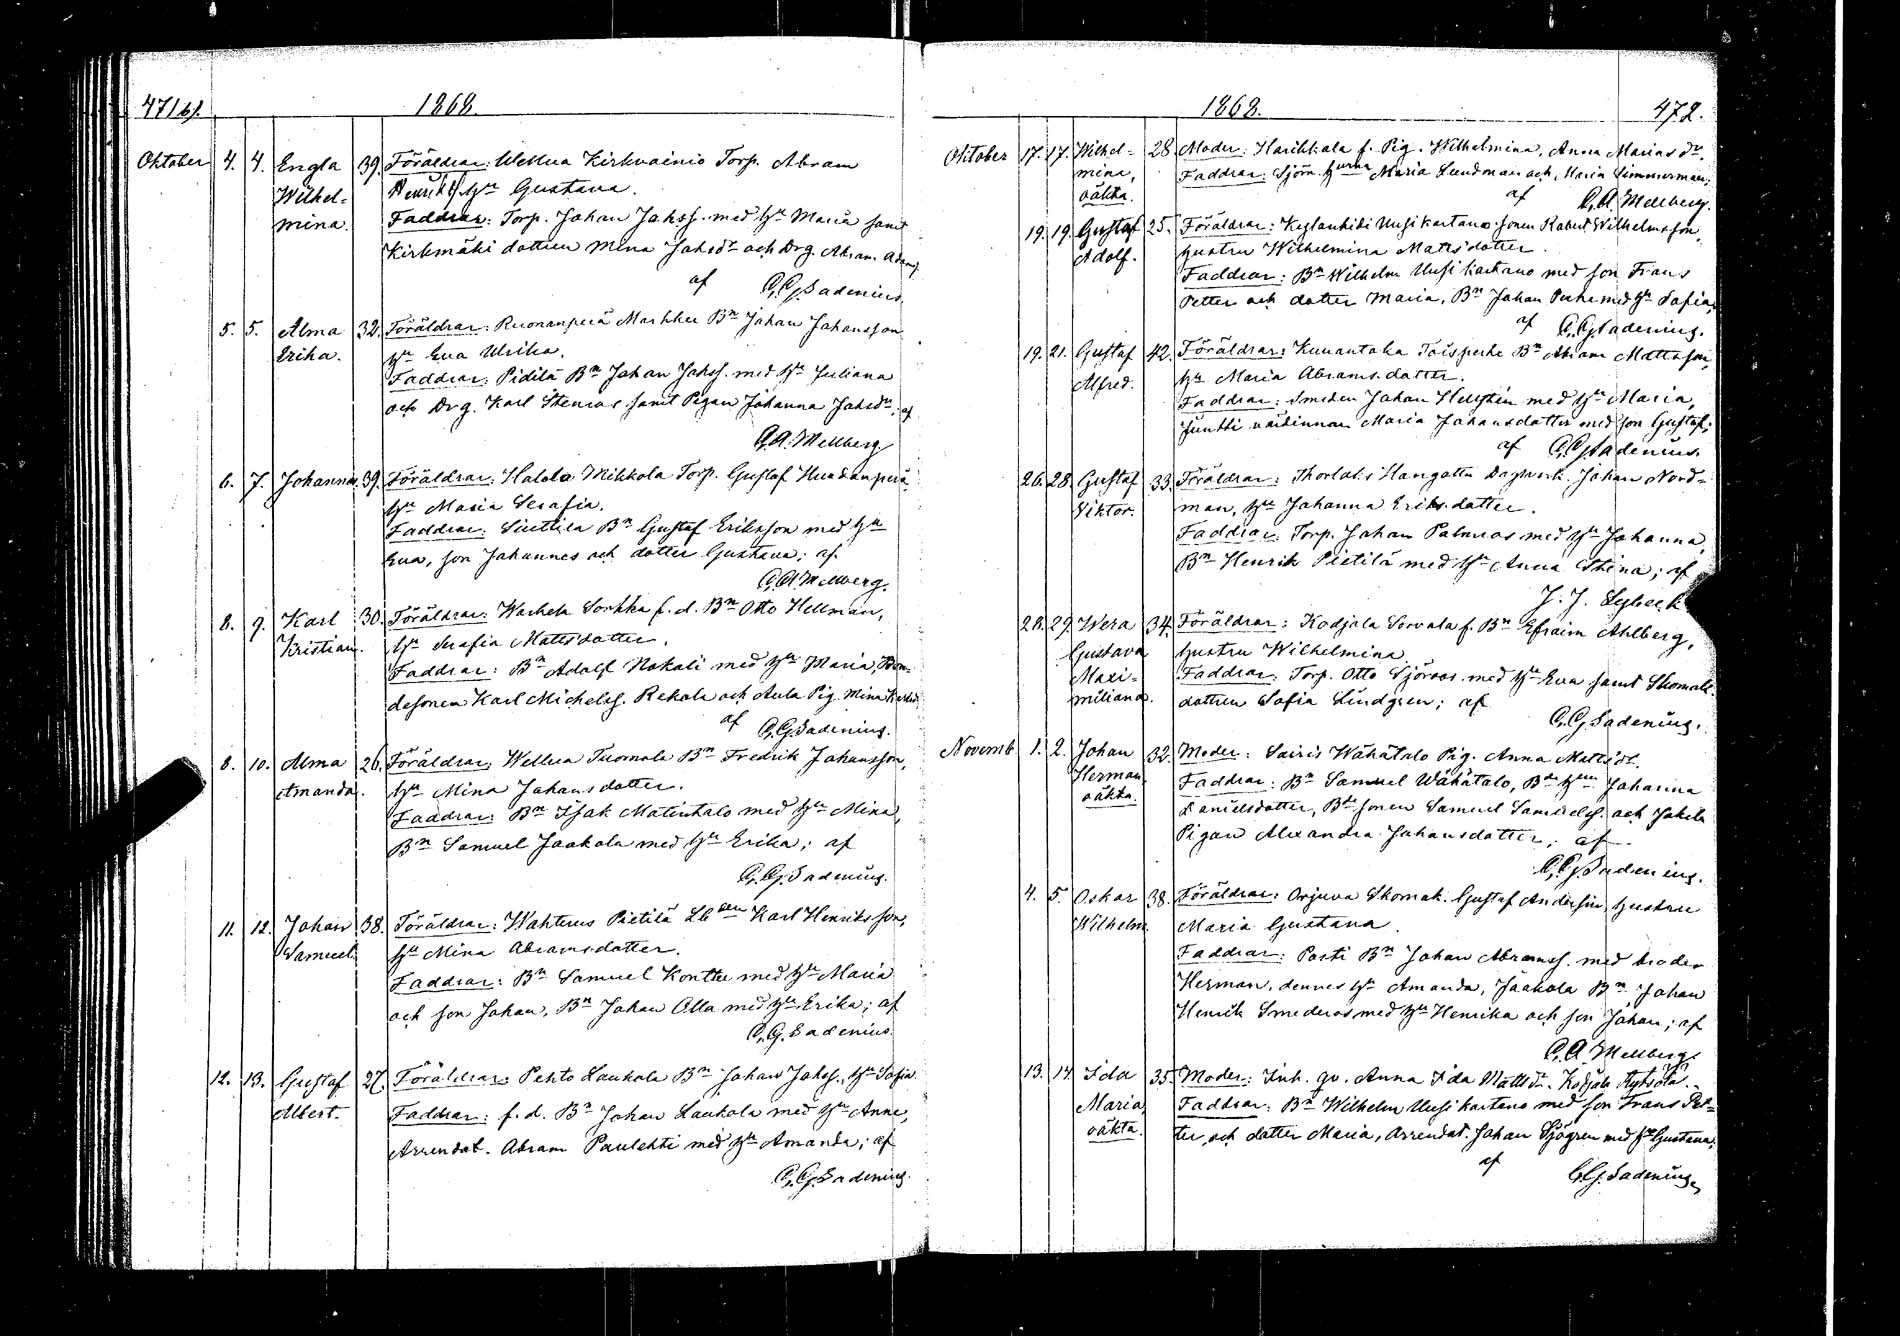 471 b).
1868.
Oktober 4. 4. Engla 39. Föräldrar: Wellua Kirkvainio Torp. Abram
Wilhel- Henrikss. hu Gustava.
mina. Faddrar: Torp. Johan Johss. med hu Maria samt
Kirkmäki dottren Mina Johsdr och Drg. Abram
af C. G. Sadenius.
5. 5. Alma 32. Föräldrar: Ruonanperä Markku Bn Johan Johansson
Erika. hu Eva Ulrika.
Faddrar: Pidilä Bn Johan Johss. med hu Juliana
och Drg. Karl Stenros samt Pigan Johanna Johsdr. af
C. A. Mellberg
6. 7. Johanna 39. Föräldrar: Halola Mikkola Torp. Gustaf
hu Maria Serafia.
Faddrar: Sinttila Bn Gustaf Eriksson med hu
Eva, son Johannes och dotter Gustava; af
C. A. Mellberg.
8. 9. Karl 30. Föräldrar: Sorkka f. d. Bn Otto Hellman,
Kristian. hu Serafia Mattsdotter.
Faddrar: Bn Adolf Nokali med hu Maria, Bon-
desonen Karl Michelss. Rekola och Aula Pig. Mina
af C. G. Sadenius.
8. 10. Alma 26. Föräldrar: Wellua Tuomola Bn Fredrik Johansson,
Amanda. hu Mina Johansdotter.
Faddrar: Bn Isak Matintalo med hu Mina,
Bn Samuel Jaakola med hu Erika; af
C. G. Sadenius.
11. 12. Johan 38. Föräldrar: Wahterus Pietilä Karl Henriksson,
Samuel. hu Mina Abramsdotter.
Faddrar: Bn Samuel Konttu med hu Maria
och son Johan, Bn Johan Olla med hu Erika; af
C. G. Sadenius.
12. 13. Gustaf 27. Föräldrar: Pehto Laukola Bn Johan Johss., hu Sofia
Albert. Faddrar: f. d. Bn Johan Laukola med hu Anna,
Arrendat. Abram Paulehti med hu Amanda; af
C. G. Sadenius.
1868.
472.
Oktober 17. 17. Wilhel- 28. Moder: Harikkala f. Pig. Wilhelmina, Anna Marias dr.
mina, Faddrar: Sjöm. Maria Lundman och Maria Simmerman;
oäkta. af C. A. Mellberg.
19. 19. Gustaf 25. Föräldrar: Uusikartano sonen Robert Wilhelmsson,
Adolf. hustru Wilhelmina Mattsdotter.
Faddrar: Bn Wilhelm Uusikartano med son Frans
Petter och dotter Maria, Bn Johan med hu Sofia;
af C. G. Sadenius.
19. 21. Gustaf 42. Föräldrar: Bn Abram Mattsson,
Alfred. hu Maria Abramsdotter.
Faddrar: Smeden Johan Hellstén med hu Maria,
Juntti värdinnan Maria Johansdotter med son Gustaf;
af C. G. Sadenius.
26. 28. Gustaf 33. Föräldrar: Johan Nord-
Viktor. man, hu Johanna Eriksdotter.
Faddrar: Torp. Johan Palmros med hu Johanna,
Bn Henrik Pietilä med hu Anna Stina; af
J. J. Lybeck
28. 29. Wera 34. Föräldrar: Kodjala Sorvala f. Bn Efraim Ahlberg,
Gustava hustru Wilhelmina
Maxi- Faddrar: Torp. Otto Sjöroos med hu Eva samt Skomak.
miliana. dottren Sofia Lindgren; af
C. G. Sadenius.
Novemb. 1. 2. Johan 32. Moder: Wähätalo Pig. Anna Mattsdr.
Herman, Faddrar: Bn Samuel Wähätalo, Johanna
oäkta. Danielsdotter, sonen Samuel Samuelss. och
Pigan Alexandra Johansdotter; af
C. G. Sadenius.
4. 5. Oskar 38. Föräldrar: Orjuva Skomak. Gustaf Andersson, hustru
Wilhelm. Maria Gustava.
Faddrar: Posti Bn Johan Abramss. med broder
Herman, dennes hu Amanda, Jaakola Bn Johan
Henrik Smederos med hu Henrika och son Johan; af
C. A. Mellberg.
13. 14. Ida 35. Moder: Inh. qv. Anna Ida Mattsdr. Kodjala
Maria, Faddrar: Bn Wilhelm Uusikartano med son Frans Pet-
oäkta. ter och dotter Maria, Arrendat. Johan Sjögren med hu Gustava;
af C. G. Sadenius